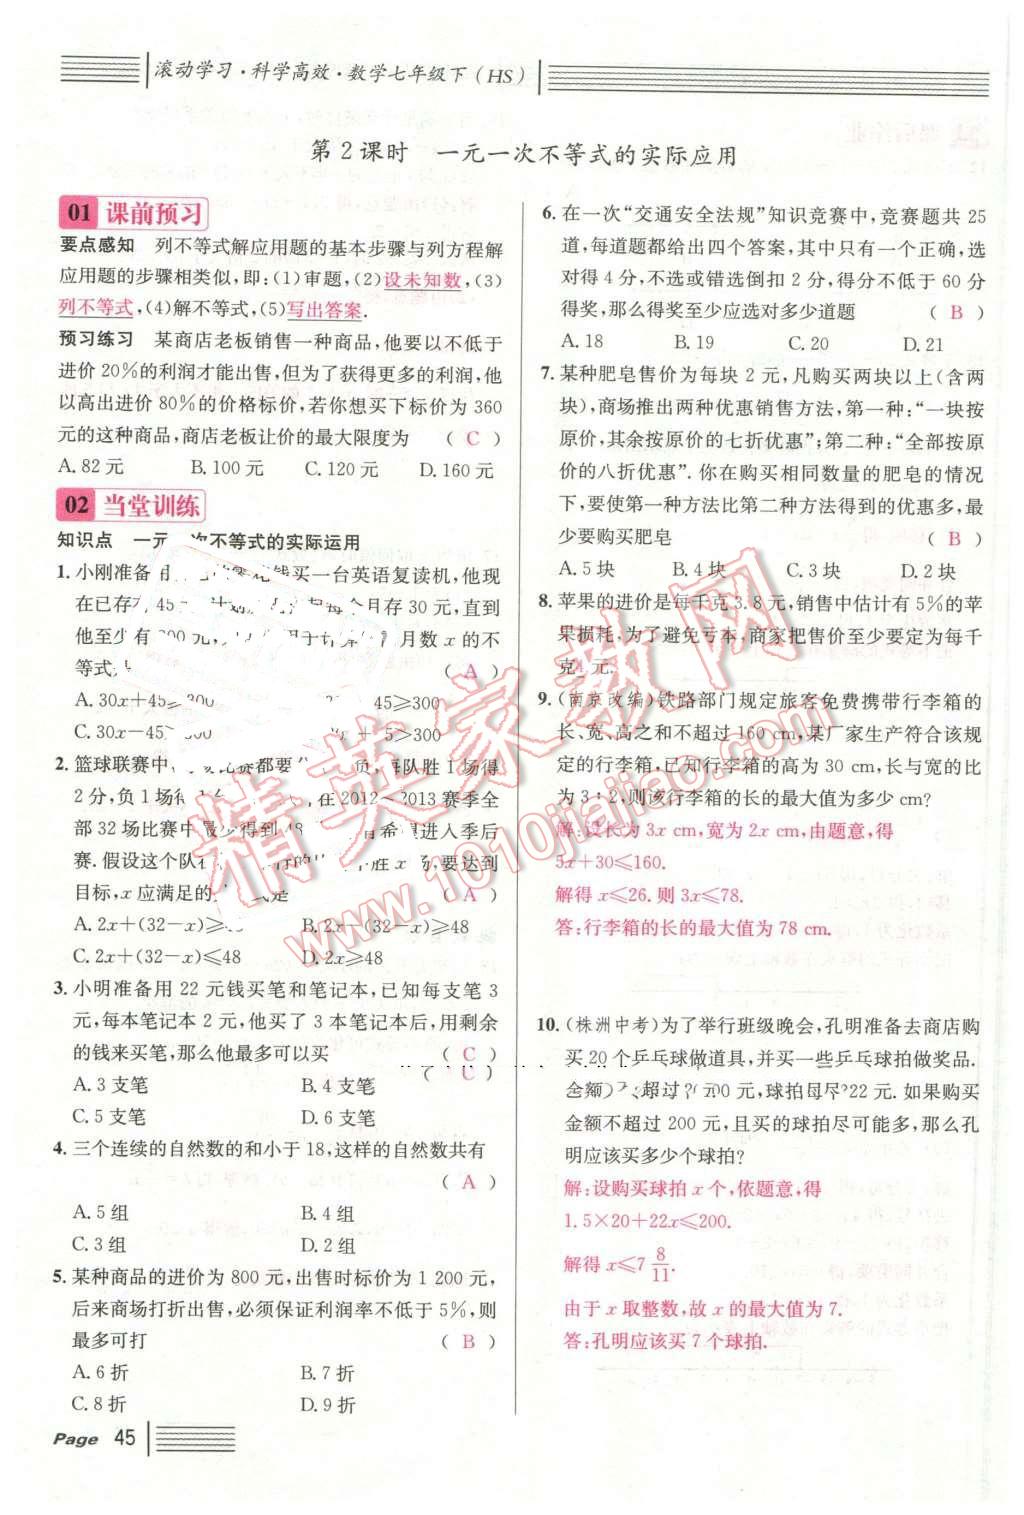 滚动学习·科学高效·数学七年级下(HS)
第2课时 一元一次不等式的实际应用
01 课前预习
要点感知 列不等式解应用题的基本步骤与列方程解
应用题的步骤相类似,即:(1)审题,(2)设未知数,(3)
列不等式,(4)解不等式,(5)写出答案.
预习练习 某商店老板销售一种商品,他要以不低于
进价20%的利润才能出售,但为了获得更多的利润,他
以高出进价80%的价格标价,若你想买下标价为360
元的这种商品,商店老板让价的最大限度为 ( C )
A.82元 B.100元 C.120元 D.160元
02 当堂训练
知识点 一元一次不等式的实际运用
1.小刚准备用 钱买一台英语复读机,他现
在已存有45元,计划 每个月存30元,直到
他至少有300元, 月数x的不
等式是 ( A )
A.30x+45≥300 45≥300
C.30x-45≥300 5≥300
2.篮球联赛中, 比赛都要分 负,每队胜1场得
2分,负1场得 在2012~2013赛季全
部32场比赛中最少得到48 希望进入季后
赛.假设这个队在 胜x场,要达到
目标,x应满足的 是 ( A )
A.2x+(32-x)≥48 B.2x-(32-x)≥48
C.2x+(32-x)≤48 D.2x≥48
3.小明准备用22元钱买笔和笔记本,已知每支笔3
元,每本笔记本2元,他买了3本笔记本后,用剩余
的钱来买笔,那么他最多可以买 ( C )
( C )
A.3支笔 B.4支笔
C.5支笔 D.6支笔
4.三个连续的自然数的和小于18,这样的自然数共有
( A )
A.5组 B.4组
C.3组 D.2组
5.某种商品的进价为800元,出售时标价为1 200元,
后来商场打折出售,必须保证利润率不低于5%,则
最多可打 ( B )
A.6折 B.7折
C.8折 D.9折
6.在一次“交通安全法规”知识竞赛中,竞赛题共25
道,每道题都给出四个答案,其中只有一个正确,选
对得4分,不选或错选倒扣2分,得分不低于60分
得奖,那么得奖至少应选对多少道题 ( B )
A.18 B.19 C.20 D.21
7.某种肥皂售价为每块2元,凡购买两块以上(含两
块),商场推出两种优惠销售方法,第一种:“一块按
原价,其余按原价的七折优惠”;第二种:“全部按原
价的八折优惠”.你在购买相同数量的肥皂的情况
下,要使第一种方法比第二种方法得到的优惠多,最
少要购买肥皂 ( B )
A.5块 B.4块 C.3块 D.2块
8.苹果的进价是每千克3.8元,销售中估计有5%的苹
果损耗.为了避免亏本,商家把售价至少要定为每千
克4元.
9.(南京改编)铁路部门规定旅客免费携带行李箱的
长、宽、高之和不超过160 cm,某厂家生产符合该规
定的行李箱.已知行李箱的高为30 cm,长与宽的比
为3∶2,则该行李箱的长的最大值为多少cm?
解:设长为3x cm,宽为2x cm,由题意,得
5x+30≤160.
解得x≤26.则3x≤78.
答:行李箱的长的最大值为78 cm.
10.(株洲中考)为了举行班级晚会,孔明准备去商店购
买20个乒乓球做道具,并买一些乒乓球拍做奖品.
金额 超过 00元,球拍每 22元.如果购买
金额不超过200元,且买的球拍尽可能多,那么孔
明应该买多少个球拍?
解:设购买球拍x个,依题意,得
1.5×20+22x≤200.
解得x≤7 8/11.
由于x取整数,故x的最大值为7.
答:孔明应该买7个球拍.
Page 45
精英家教网
www.1010jiajiao.com